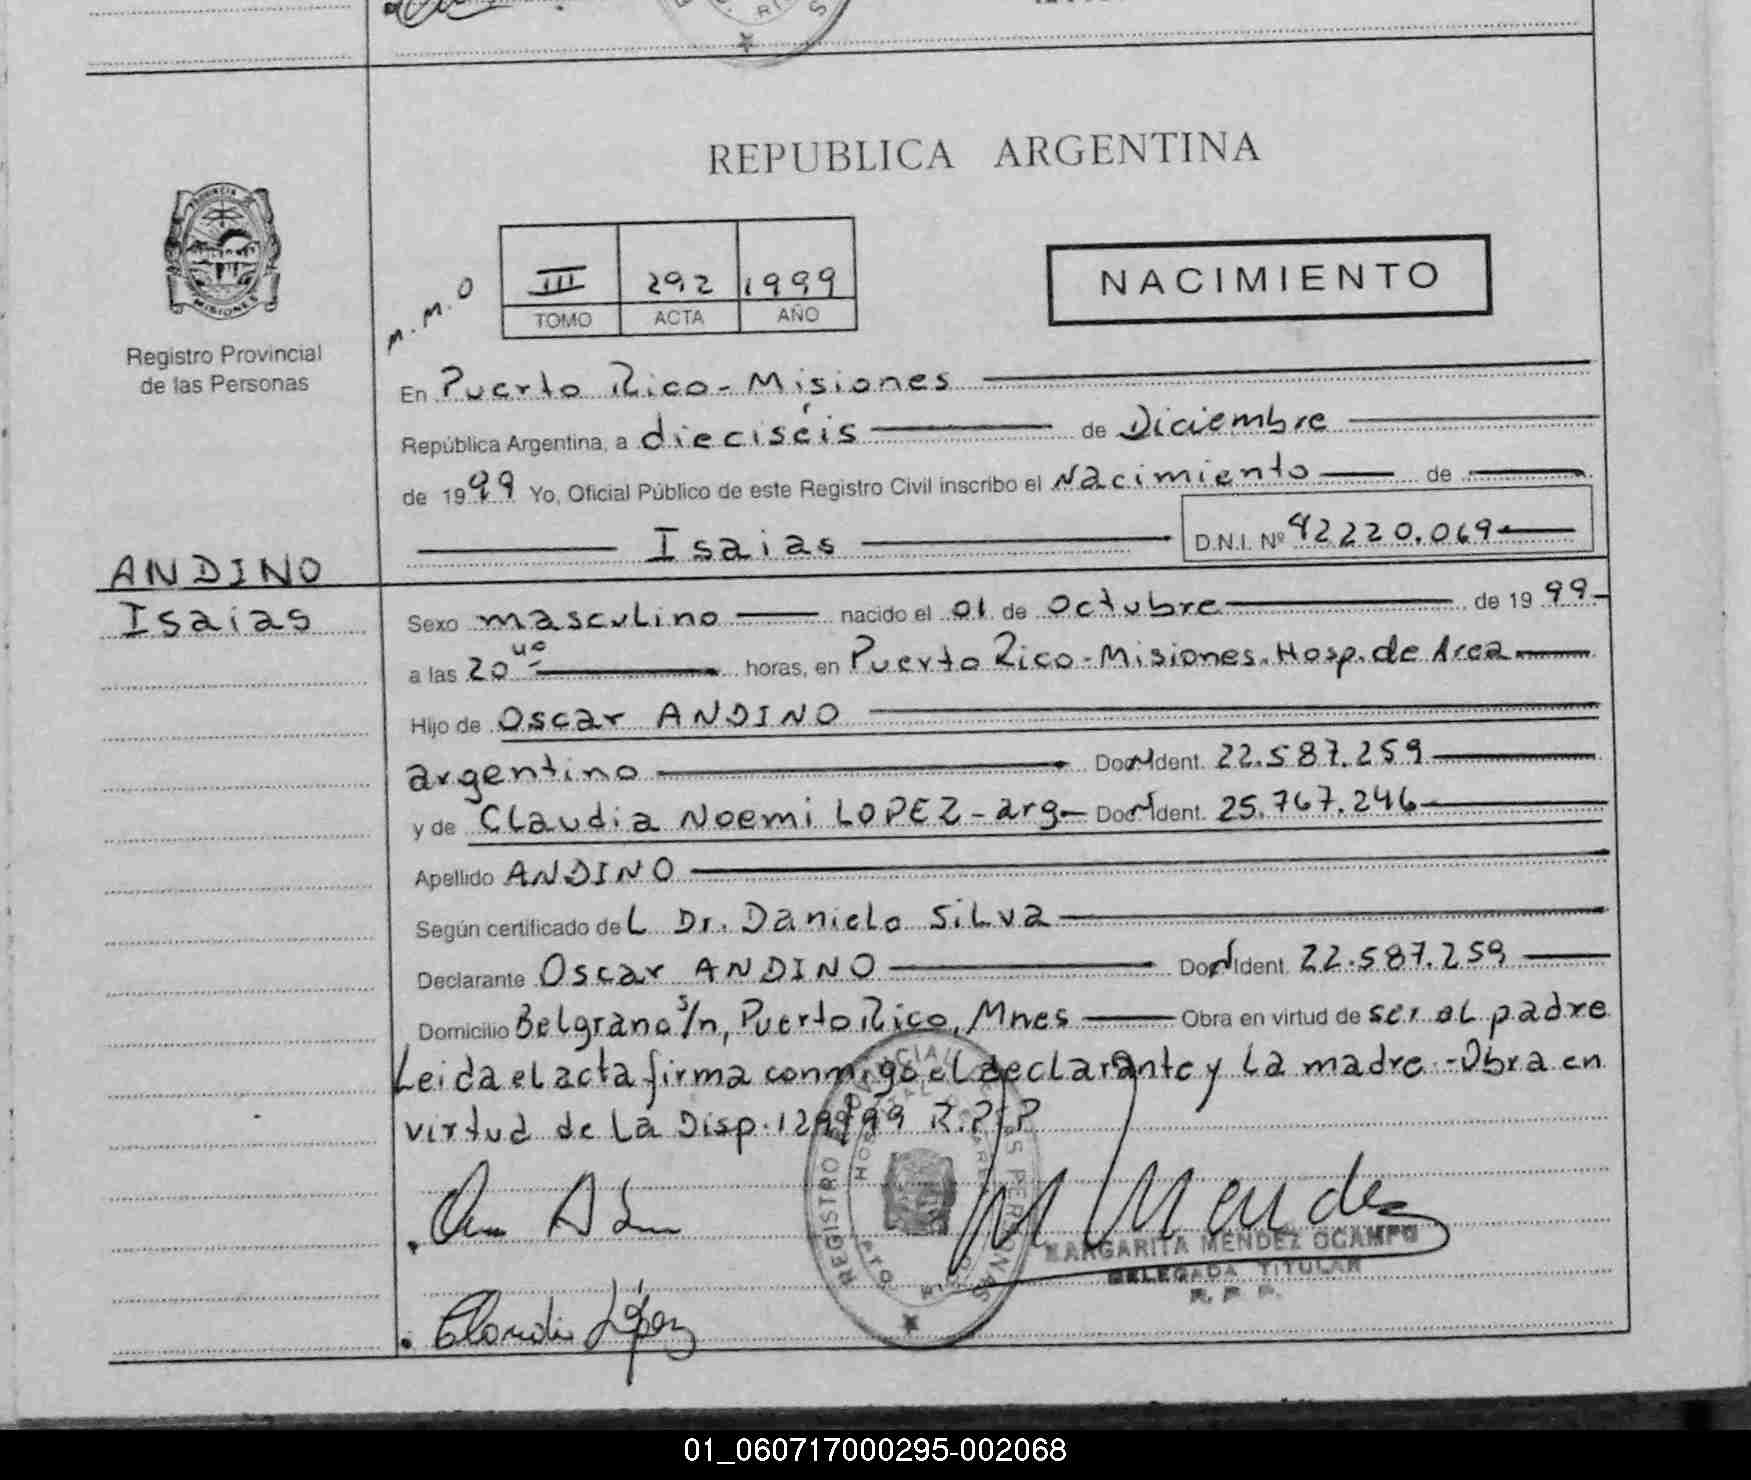 REPUBLICA ARGENTINA
PROVINCIA
MISIONES
Registro Provincial
de las Personas
M.M.O
III 292 1999
TOMO ACTA AÑO
NACIMIENTO
En Puerto Rico - Misiones
República Argentina, a dieciséis de Diciembre
de 1999 Yo, Oficial Público de este Registro Civil inscribo el Nacimiento de
Isaias D.N.I. Nº 42220.069
ANDINO
Isaias
Sexo masculino nacido el 01 de Octubre de 1999
a las 20 40 horas, en Puerto Rico - Misiones. Hosp. de Area
Hijo de Oscar ANDINO
argentino Doc. Ident. 22.587.259
y de Claudia Noemi LOPEZ - arg - Doc. Ident. 25.767.246
Apellido ANDINO
Según certificado del Dr. Danielo SiLva
Declarante Oscar ANDINO Doc. Ident. 22.587.259
Domicilio Belgrano s/n, Puerto Rico, Mnes Obra en virtud de ser el padre
Leida el acta firma conmigo el declarante y la madre - Obra en
virtud de la Disp. 129/99 R.P.P
M Mendez
MARGARITA MENDEZ OCAMPO
DELEGADA TITULAR
R. P. P.
REGISTRO PROVINCIAL DE LAS PERSONAS
Claudia López
01_060717000295-002068